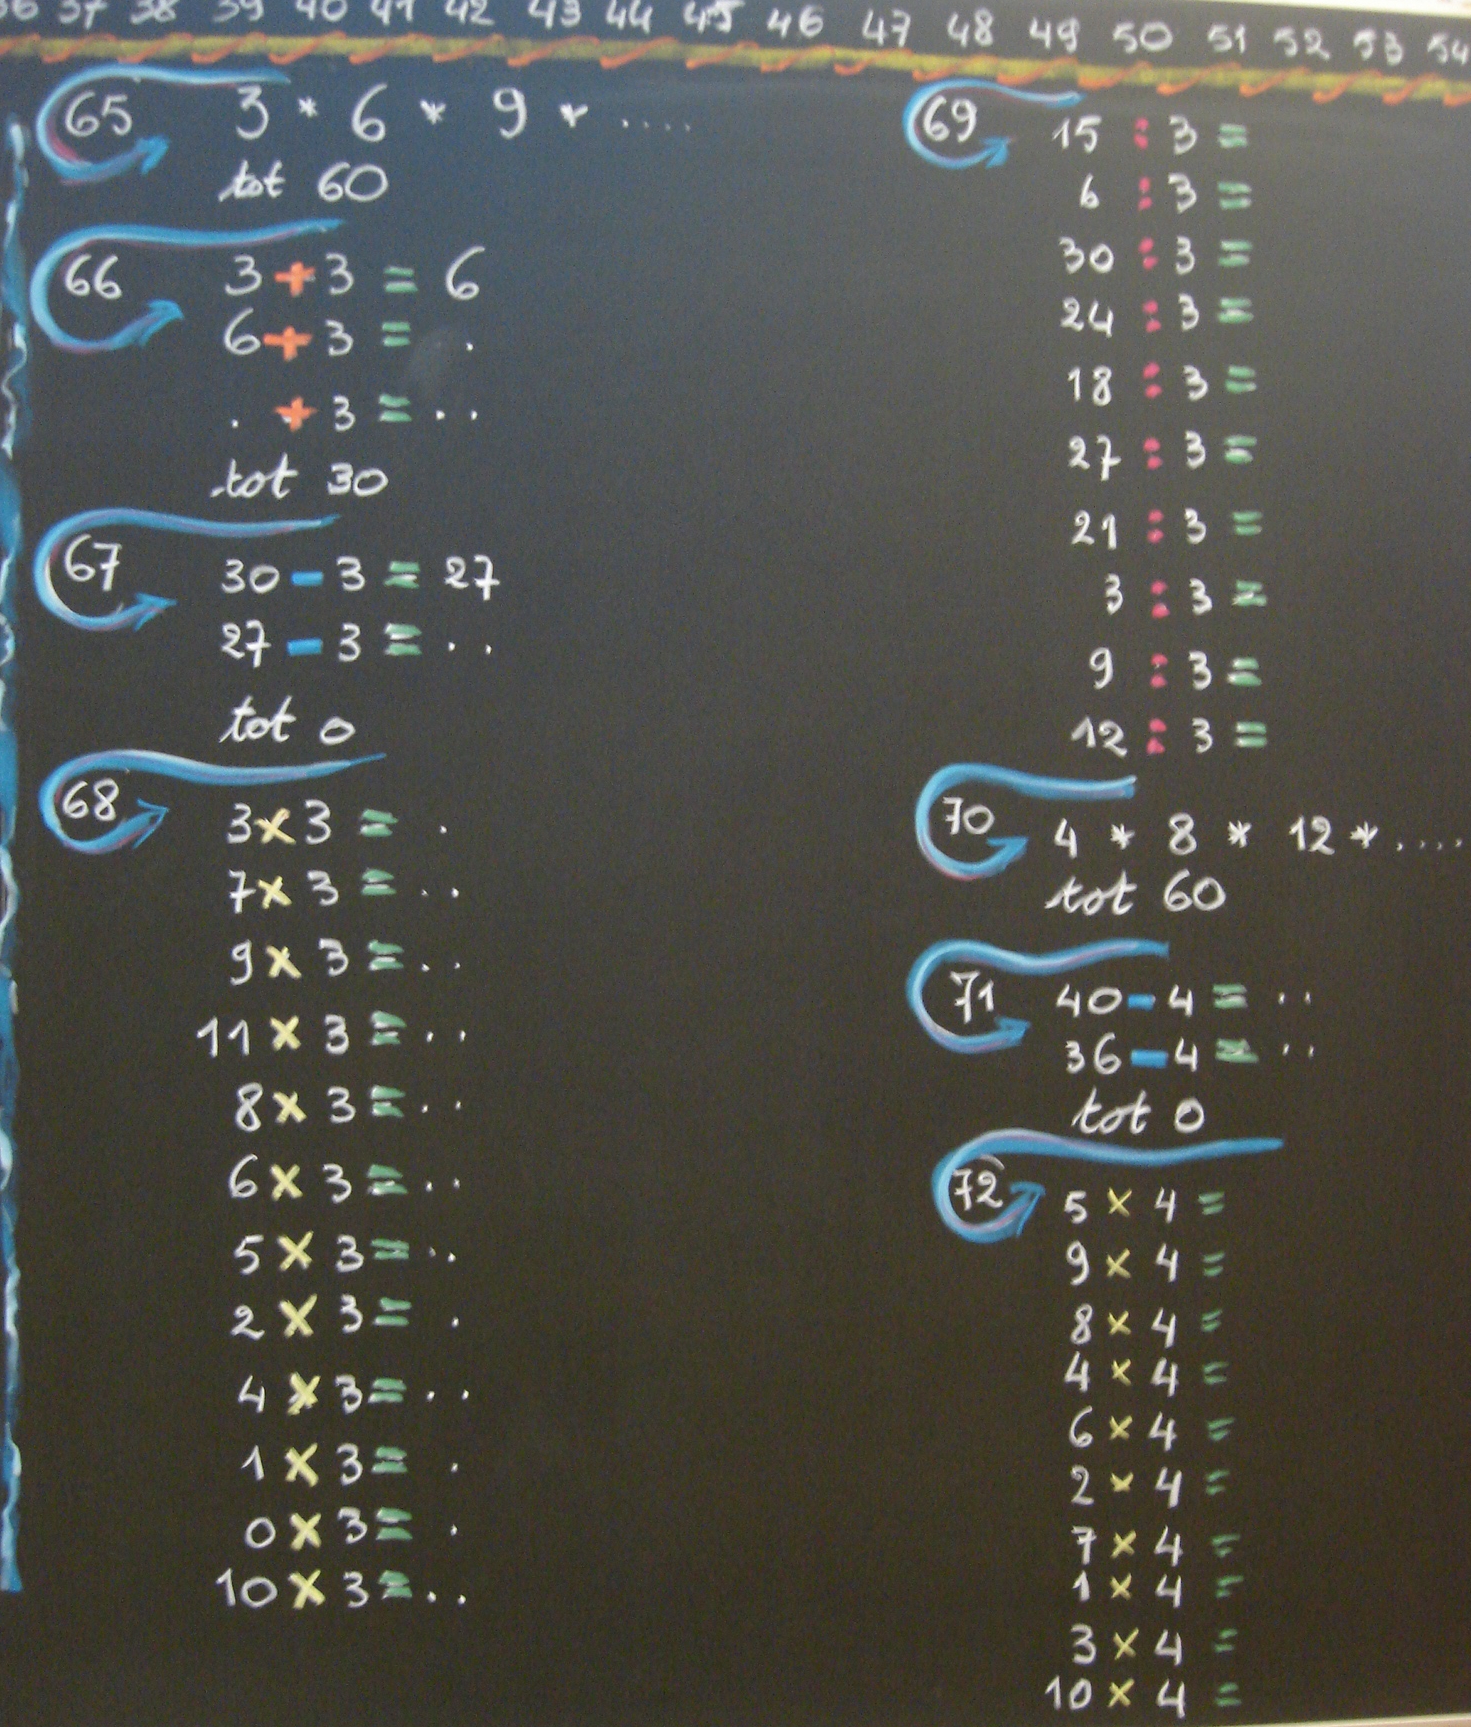 36 37 38 39 40 41 42 43 44 45 46 47 48 49 50 51 52 53 54
65 3 * 6 * 9 * ....
tot 60
66 3 + 3 = 6
6 + 3 = .
. + 3 = ..
tot 30
67 30 - 3 = 27
27 - 3 = ..
tot 0
68 3 x 3 = .
7 x 3 = ..
9 x 3 = ..
11 x 3 = ..
8 x 3 = ..
6 x 3 = ..
5 x 3 = ..
2 x 3 = .
4 x 3 = ..
1 x 3 = .
0 x 3 = .
10 x 3 = ..
69 15 : 3 =
6 : 3 =
30 : 3 =
24 : 3 =
18 : 3 =
27 : 3 =
21 : 3 =
3 : 3 =
9 : 3 =
12 : 3 =
70 4 * 8 * 12 * ....
tot 60
71 40 - 4 = ..
36 - 4 = ..
tot 0
72 5 x 4 =
9 x 4 =
8 x 4 =
4 x 4 =
6 x 4 =
2 x 4 =
7 x 4 =
1 x 4 =
3 x 4 =
10 x 4 =